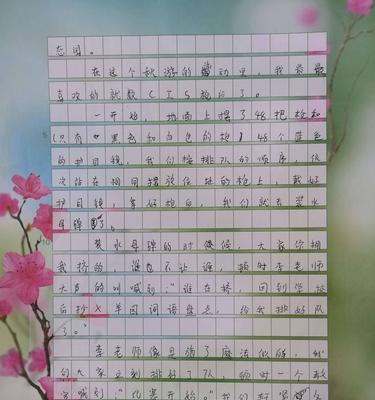 态园。
在这个秋游的活动里，我最最
喜欢的就数CTS枪台了。
一开始，地面上摆了48把枪和
(只有 黑色和白色的枪) 48个蓝色
的护目镜，我们按排队的顺序，依
次站在相同摆放位 的枪上，戴好
护目镜，拿好枪
母弹
装水母弹的时候，大家你拥
我挤的，谁也不让谁，顿时李老师
大声的叫喊到：“谁在挤，回到学校
后抄 单园词语盘点，给我排好队
了。”
李老师像是施了魔法似的，我
们九家立刻排好了队，顿时一个教
官喊到：“比赛开始。”我们